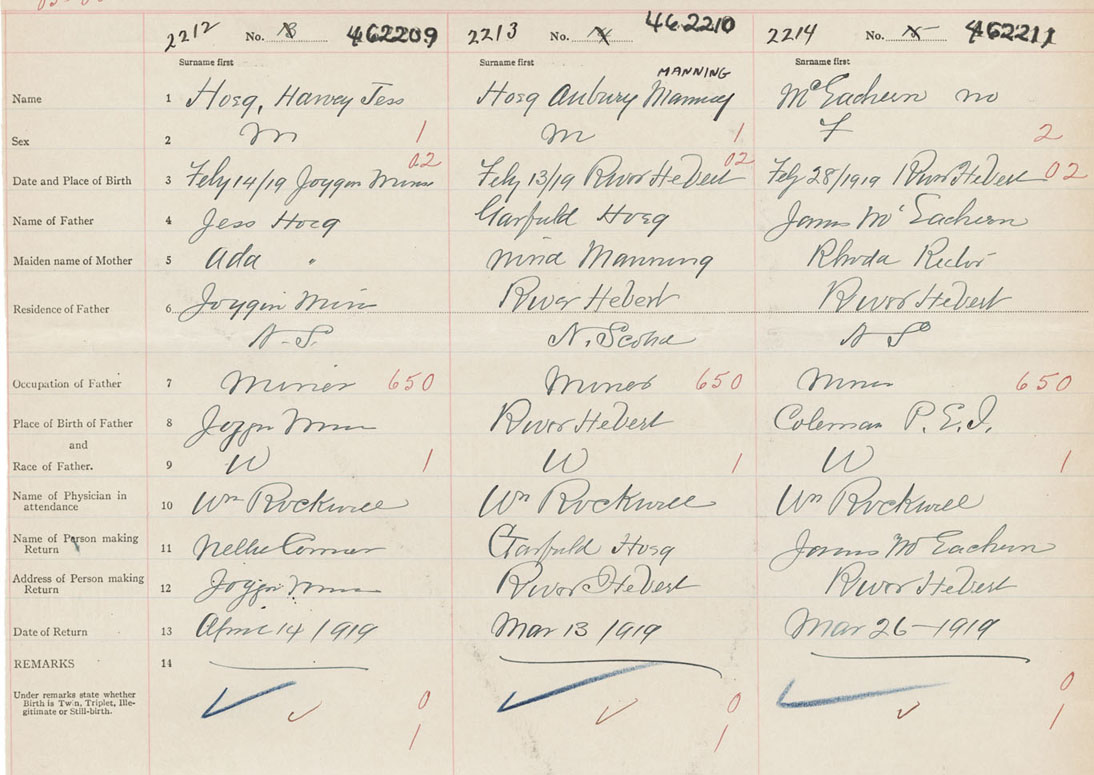 2212 No. 462209 2213 No. 462210 2214 No. 462211
Surname first Surname first Surname first
MANNING
Name 1 Hoeg, Harvey Jess Hoeg Aubury Manning McEachern no
Sex 2 M 1 M 1 F 2
02 02
Date and Place of Birth 3 Feby 14/19 Joggin Mines Feby 13/19 River Hebert Feby 28/1919 River Hebert 02
Name of Father 4 Jess Hoeg Garfield Hoeg James McEachern
Maiden name of Mother 5 Ada " Nina Manning Rhoda Rector
Residence of Father 6 Joggin Mines River Hebert River Hebert
N.S. N. Scotia N S
Occupation of Father 7 Miner 650 Miner 650 Miner 650
Place of Birth of Father 8 Joggin Mines River Hebert Coleman P.E.I.
and
Race of Father. 9 W 1 W 1 W 1
Name of Physician in
attendance 10 Wm Rockwell Wm Rockwell Wm Rockwell
Name of Person making
Return 11 Nellie Garfield Hoeg James McEachern
Address of Person making
Return 12 Joggin Mines River Hebert River Hebert
Date of Return 13 April 14/1919 Mar 13/1919 Mar 26-1919
REMARKS 14
Under remarks state whether
Birth is Twin, Triplet, Ille-
gitimate or Still-birth.
0 0 0
1 1 1